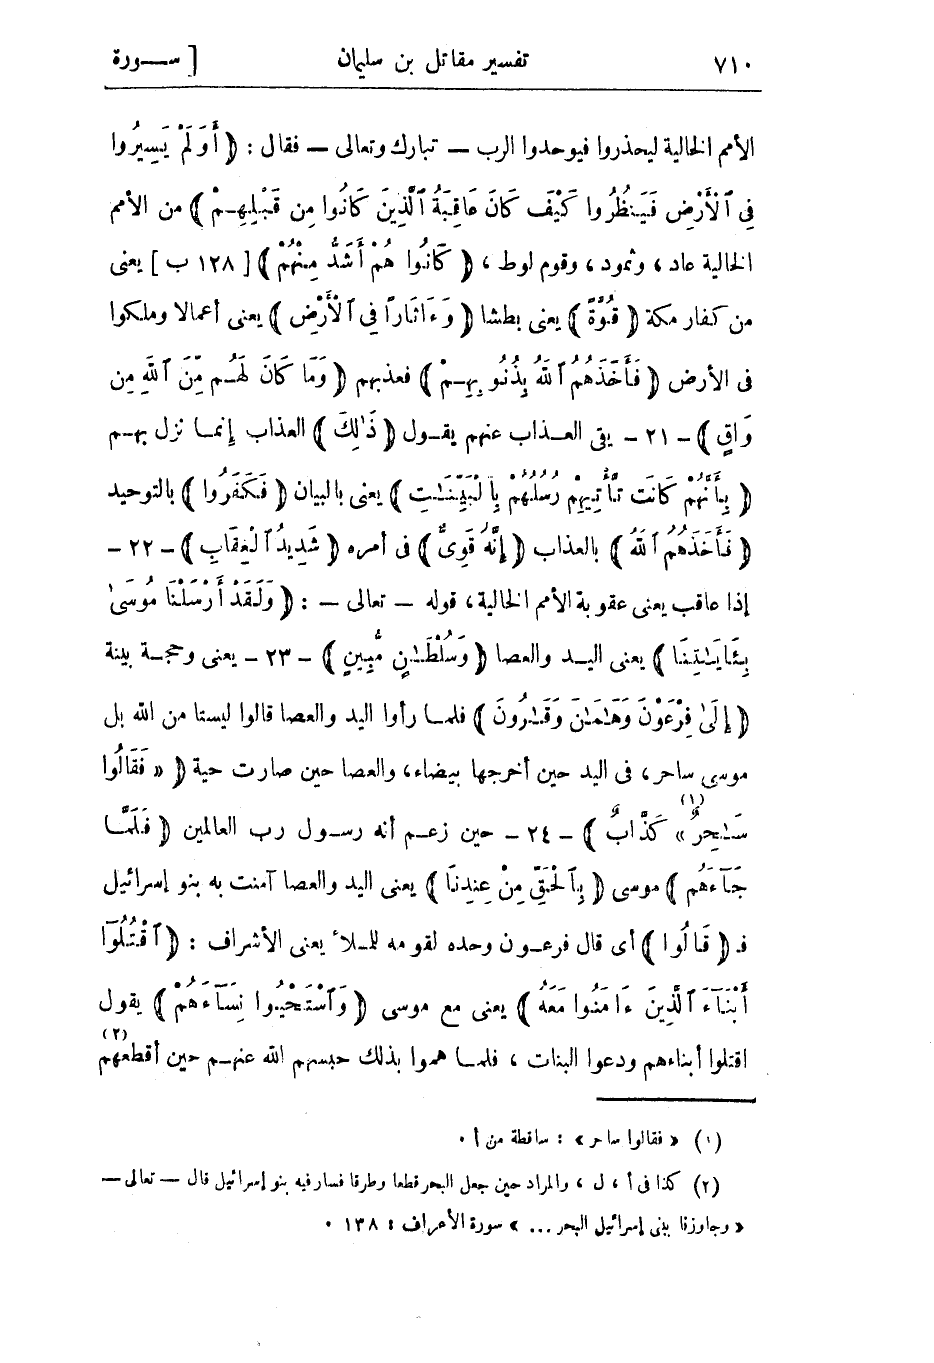 ٧١٠ تفسير مقاتل بن سليمان [ ســورة
الأمم الخالية ليحذروا فيوحدوا الرب — تبارك وتعالى — فقال : ﴿ أَوَلَمْ يَسِيرُوا
فِي ٱلْأَرْضِ فَيَنظُرُوا كَيْفَ كَانَ عَاقِبَةُ ٱلَّذِينَ كَانُوا مِن قَبْلِهِمْ ﴾ من الأمم
الخالية عاد ، وثمود ، وقوم لوط ، ﴿ كَانُوا هُمْ أَشَدَّ مِنْهُمْ ﴾ [ ١٢٨ ب ] يعنى
من كفار مكة ﴿ قُوَّةً ﴾ يعنى بطشا ﴿ وَءَاثَارًا فِي ٱلْأَرْضِ ﴾ يعنى أعمالا وملكوا
فى الأرض ﴿ فَأَخَذَهُمُ ٱللَّهُ بِذُنُوبِهِمْ ﴾ فعذبهم ﴿ وَمَا كَانَ لَهُم مِّنَ ٱللَّهِ مِن
وَاقٍ ﴾ - ٢١ - يقى العـذاب عنهم يقـول ﴿ ذَٰلِكَ ﴾ العذاب إنمـا نزل بهـم
﴿ بِأَنَّهُمْ كَانَت تَّأْتِيهِمْ رُسُلُهُمْ بِٱلْبَيِّنَـٰتِ ﴾ يعنى بالبيان ﴿ فَكَفَرُوا ﴾ بالتوحيد
﴿ فَأَخَذَهُمُ ٱللَّهُ ﴾ بالعذاب ﴿ إِنَّهُ قَوِىٌّ ﴾ فى أمره ﴿ شَدِيدُ ٱلْعِقَابِ ﴾ - ٢٢ -
إذا عاقب يعنى عقوبة الأمم الخالية ، قوله — تعالى — : ﴿ وَلَقَدْ أَرْسَلْنَا مُوسَىٰ
بِـَٔايَـٰتِنَا ﴾ يعنى اليـد والعصا ﴿ وَسُلْطَـٰنٍ مُّبِينٍ ﴾ - ٢٣ - يعنى وحجـة بينة
﴿ إِلَىٰ فِرْعَوْنَ وَهَـٰمَـٰنَ وَقَـٰرُونَ ﴾ فلمـا رأوا اليد والعصا قالوا ليستا من الله بل
موسى ساحر ، فى اليد حين أخرجها بيضاء ، والعصا حين صارت حية ﴿ « فَقَالُوا
سَـٰحِرٌ » (١) كَذَّابٌ ﴾ - ٢٤ - حين زعـم أنه رسـول رب العالمين ﴿ فَلَمَّـا
جَآءَهُم ﴾ موسى ﴿ بِٱلْحَقِّ مِنْ عِندِنَا ﴾ يعنى اليد والعصا آمنت به بنو إسرائيل
فـ ﴿ قَالُوا ﴾ أى قال فرعـون وحده لقومه للمـلأ يعنى الأشراف : ﴿ ٱقْتُلُوٓا
أَبْنَآءَ ٱلَّذِينَ ءَامَنُوا مَعَهُ ﴾ يعنى مع موسى ﴿ وَٱسْتَحْيُوا نِسَآءَهُمْ ﴾ يقول
اقتلوا أبناءهم ودعوا البنات ، فلمـا هموا بذلك حبسهم الله عنهـم حين أقطعهم (٢)
(١) « فقالوا ساحر » : ساقطة من أ .
(٢) كذا فى أ ، ل ، والمراد حين جعل البحر قطعا وطرقا فسار فيه بنو إسرائيل قال — تعالى —
« وجاوزنا ببنى إسرائيل البحر ... » سورة الأعراف : ١٣٨ .